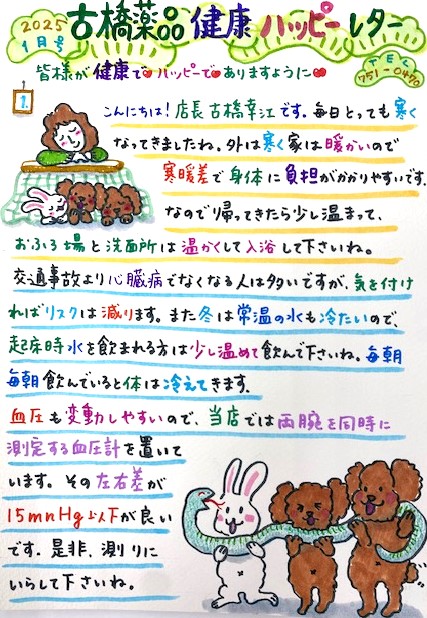 2025
1月号
古橋薬品 健康 ハッピーレター
皆様が健康で ハッピーで ありますように
TEL
751-0470
1.
こんにちは!店長 古橋幸江です。毎日とっても寒く
なってきましたね。外は寒く家は暖かいので
寒暖差で身体に負担がかかりやすいです。
なので帰ってきたら少し温まって、
おふろ場と洗面所は温かくして入浴して下さいね。
交通事故より心臓病でなくなる人は多いですが、気を付け
ればリスクは減ります。また冬は常温の水も冷たいので、
起床時水を飲まれる方は少し温めて飲んで下さいね。毎朝
毎朝飲んでいると体は冷えてきます。
血圧も変動しやすいので、当店では両腕を同時に
測定する血圧計を置いて
います。その左右差が
15mmHg以下が良い
です。是非、測りに
いらして下さいね。